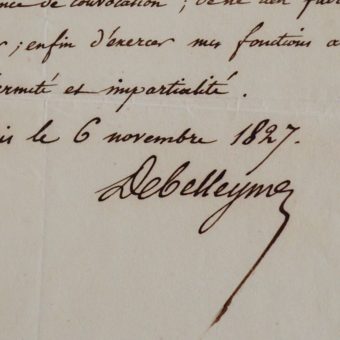 de convocation ;
; enfin d'exercer mes fonctions a
et impartialité.
le 6 novembre 1827.
Debelleyme